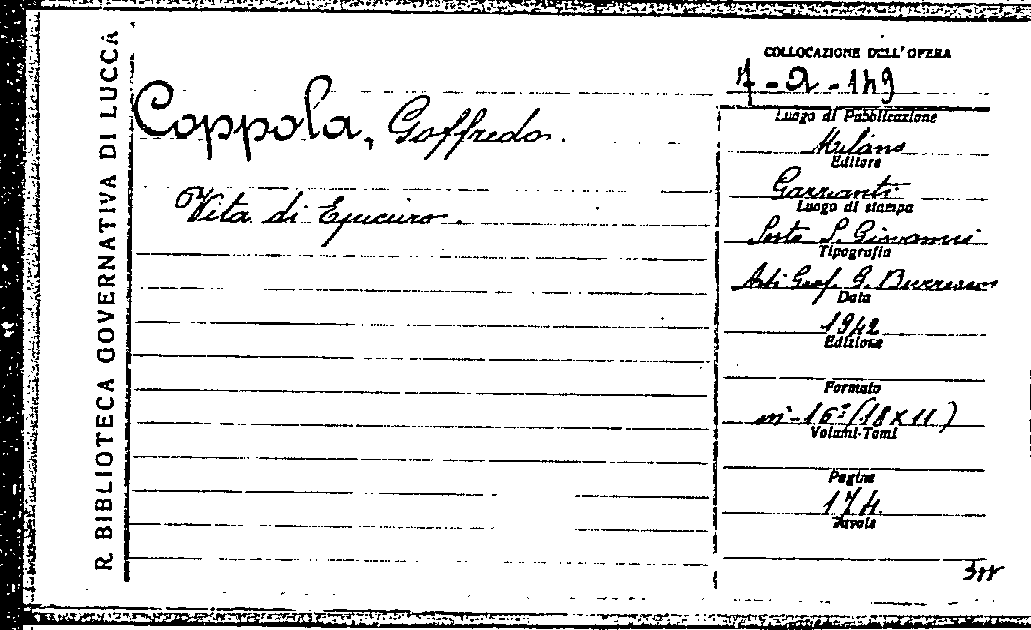 R. BIBLIOTECA GOVERNATIVA DI LUCCA
Coppola, Goffredo.
Vita di Epicuro.
COLLOCAZIONE DELL'OPERA
7-2-149
Luogo di Pubblicazione
Milano
Editore
Garzanti
Luogo di stampa
Sesto S. Giovanni
Tipografia
Arti Graf. G.
Data
1942
Edizione
Formato
in-16º (18 x 11)
Volumi-Tomi
Pagine
174
Tavole